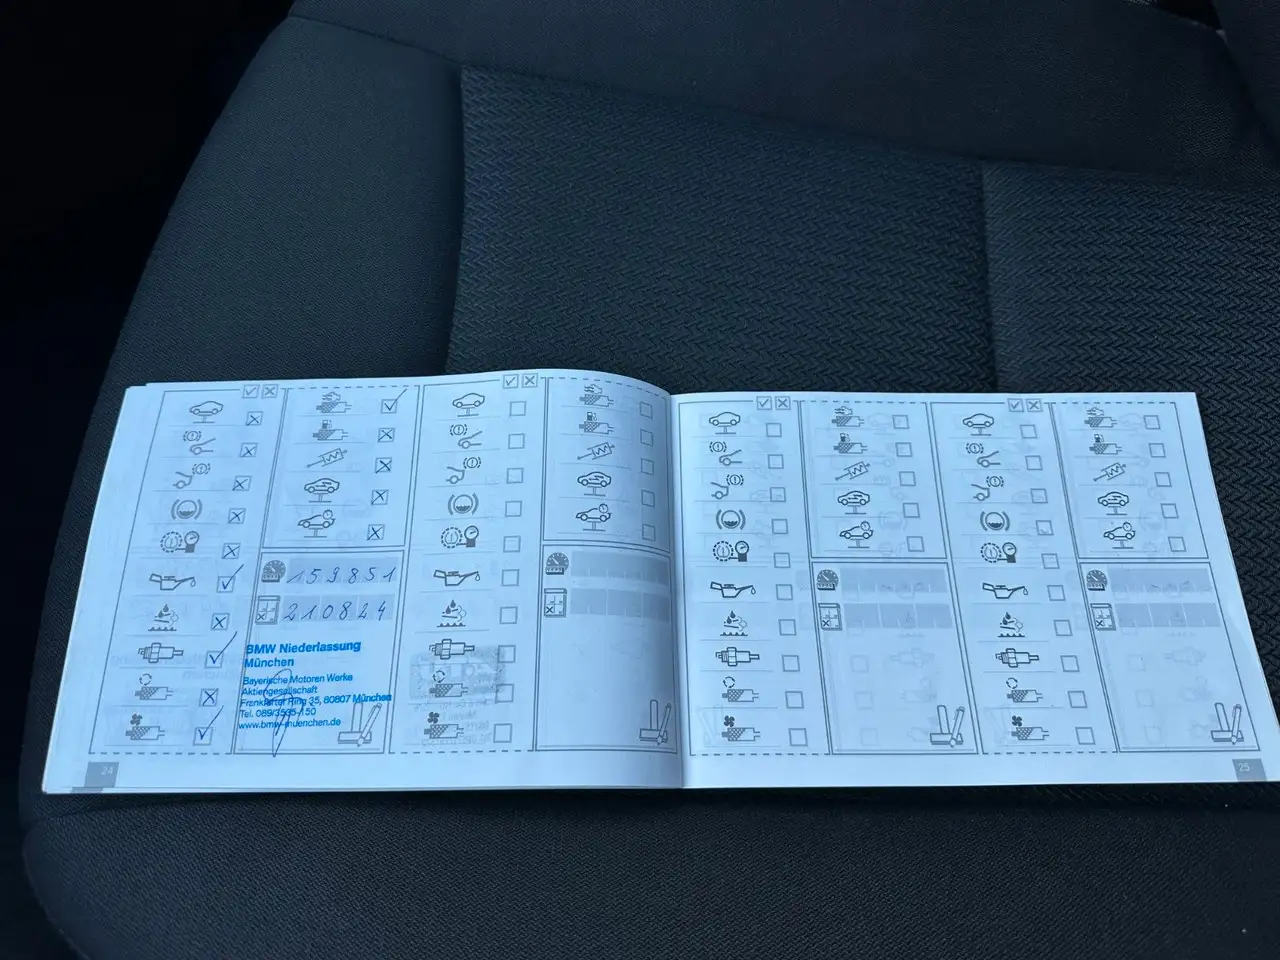 159851
210824
BMW Niederlassung
München
Bayerische Motoren Werke
Aktiengesellschaft
Frankfurter Ring 35, 80807 München
Tel. 089/3535-150
www.bmw-muenchen.de
24
25